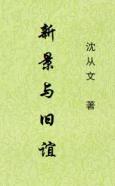 新景与旧谊
沈从文 著